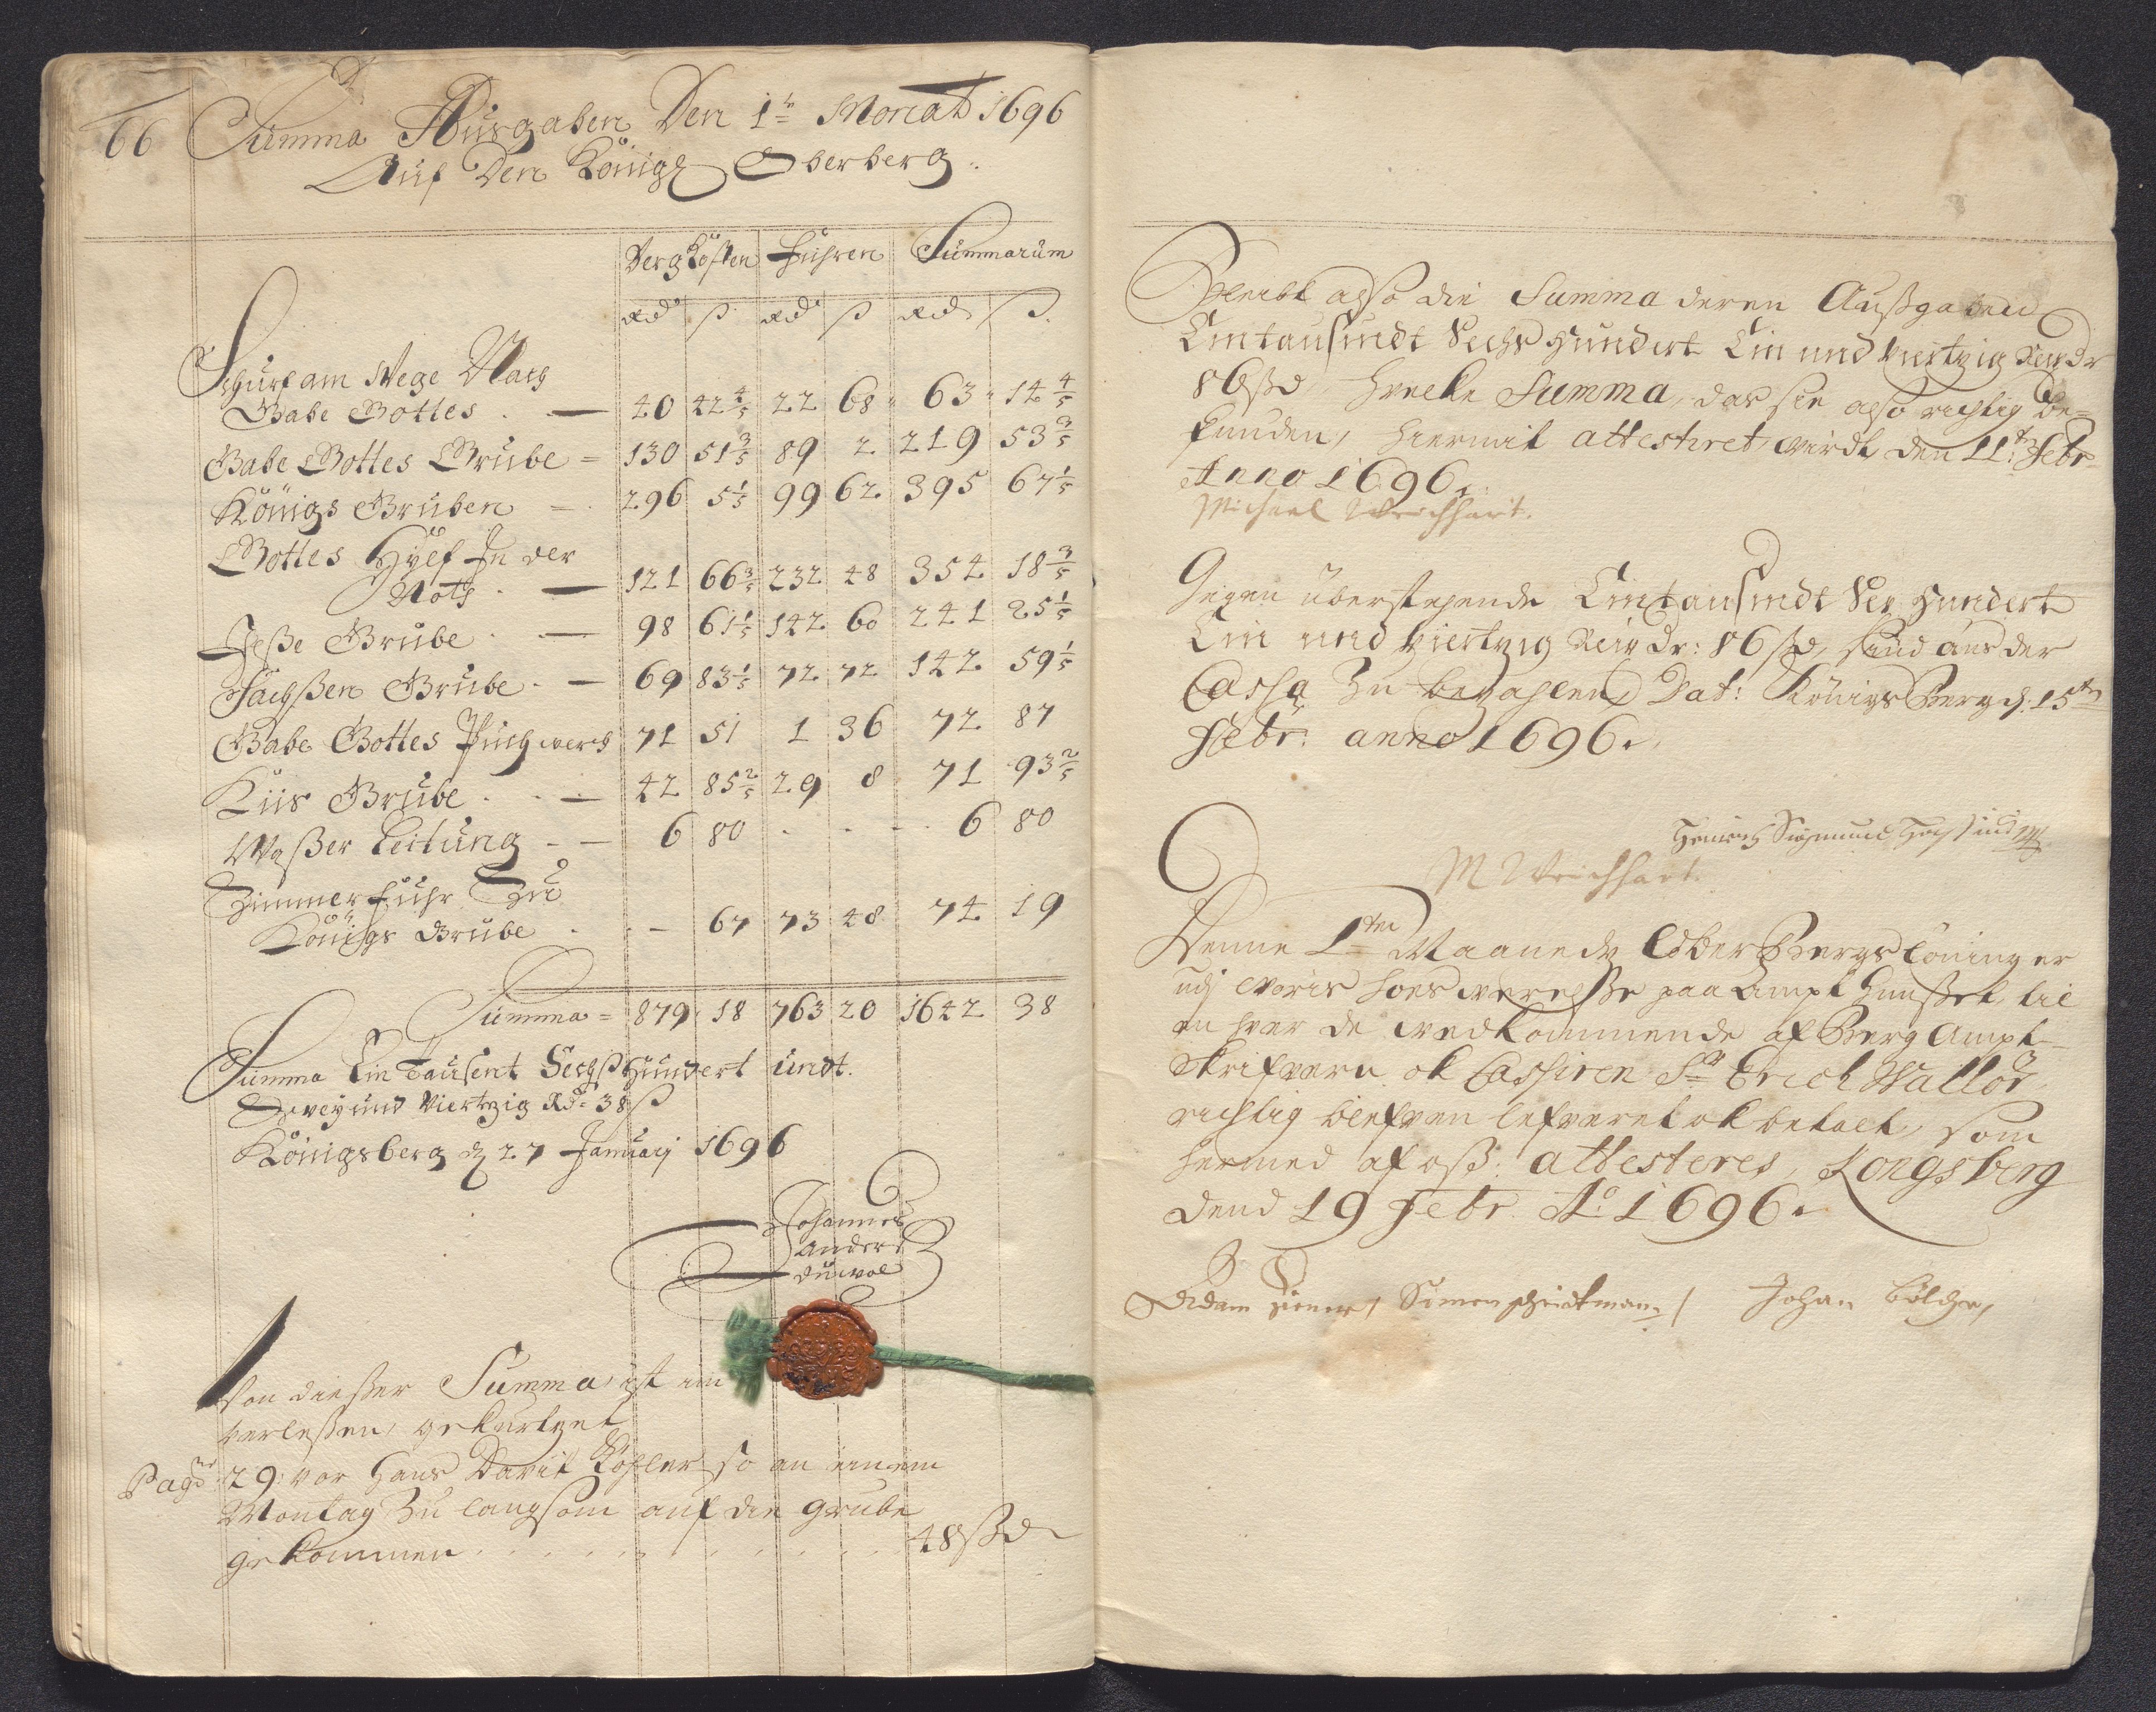 66
Summa Ausgaben Den 1tn Monat 1696
Auf Den Königl Oberberg.
BergKosten Fuhren Summarum
Rd ß Rd ß Rd ß
Schurf am Wege Nach
Gabe Gottes . — 40 42 4/5 22 68 63 14 4/5
Gabe Gottes Grube = 130 51 3/5 89 2 219 53 3/5
Königs Gruben = 296 5 1/5 99 62 395 67 1/5
Gottes Hülf In der
Noth . — 121 66 3/5 232 48 354 18 3/5
Jeße Grube . — 98 61 1/5 142 60 241 25 1/5
Sachßen Grube . — 69 83 1/5 72 72 142 59 1/5
Gabe Gottes Puchwerch 71 51 1 36 72 87
Kiis Grube . . — 42 85 2/5 29 8 71 93 2/5
Waßer Leitung - — 6 80 . . . 6 80
Zimmerfuhr Zu
Königs Grube . . — 67 73 48 74 19
Summa = 879 18 763 20 1642 38
Summa Ein Tausent Sechßhundert undt
Zwey und Viertzig Rd: 38 ß
Königsberg d 27 Januarj 1696
Johannes
Anders
Duwal
Von dießer Summa ist im
verleßen, gekurtzet
Pag 29: vor Hans Davit Köhler so an einem
Montag Zu langsom auf die grube
gekommen . . . . . . . . . . . 48 ßd
Bleibt also die Summa deren Außgaben
Eintausendt Sechs Hundert Ein und viertzig Reixdr
86 ßd, Welche Summa, das sie also richtig be-
funden, hiermit attestiret wirdt, den 11tn Febr
Anno 1696.
Michael Weichhart.
Gegen überstehende Eintausendt Sex Hundert
Ein und viertzig Reixdr: 86 ßd, sind aus der
Cassa Zu bezahlen, Dat: KönigsBerg d: 15tn
Febr: anno 1696.
Heinrich Sigmund
M Weichhart.
Denne 1ten Maanedz OberBergs Löninger
udj voris hoes werelße paa Ampt Hußet, til
en hver de vedkommende af Berg Ampt-
skrifvern ok Cassiren Sr Erich Walløe,
richtig blefven lefveret ok betalt, som
hermed af oß: attesteres, Kongsberg
dend 19 Febr. Ao 1696.
Adam Simon Johan